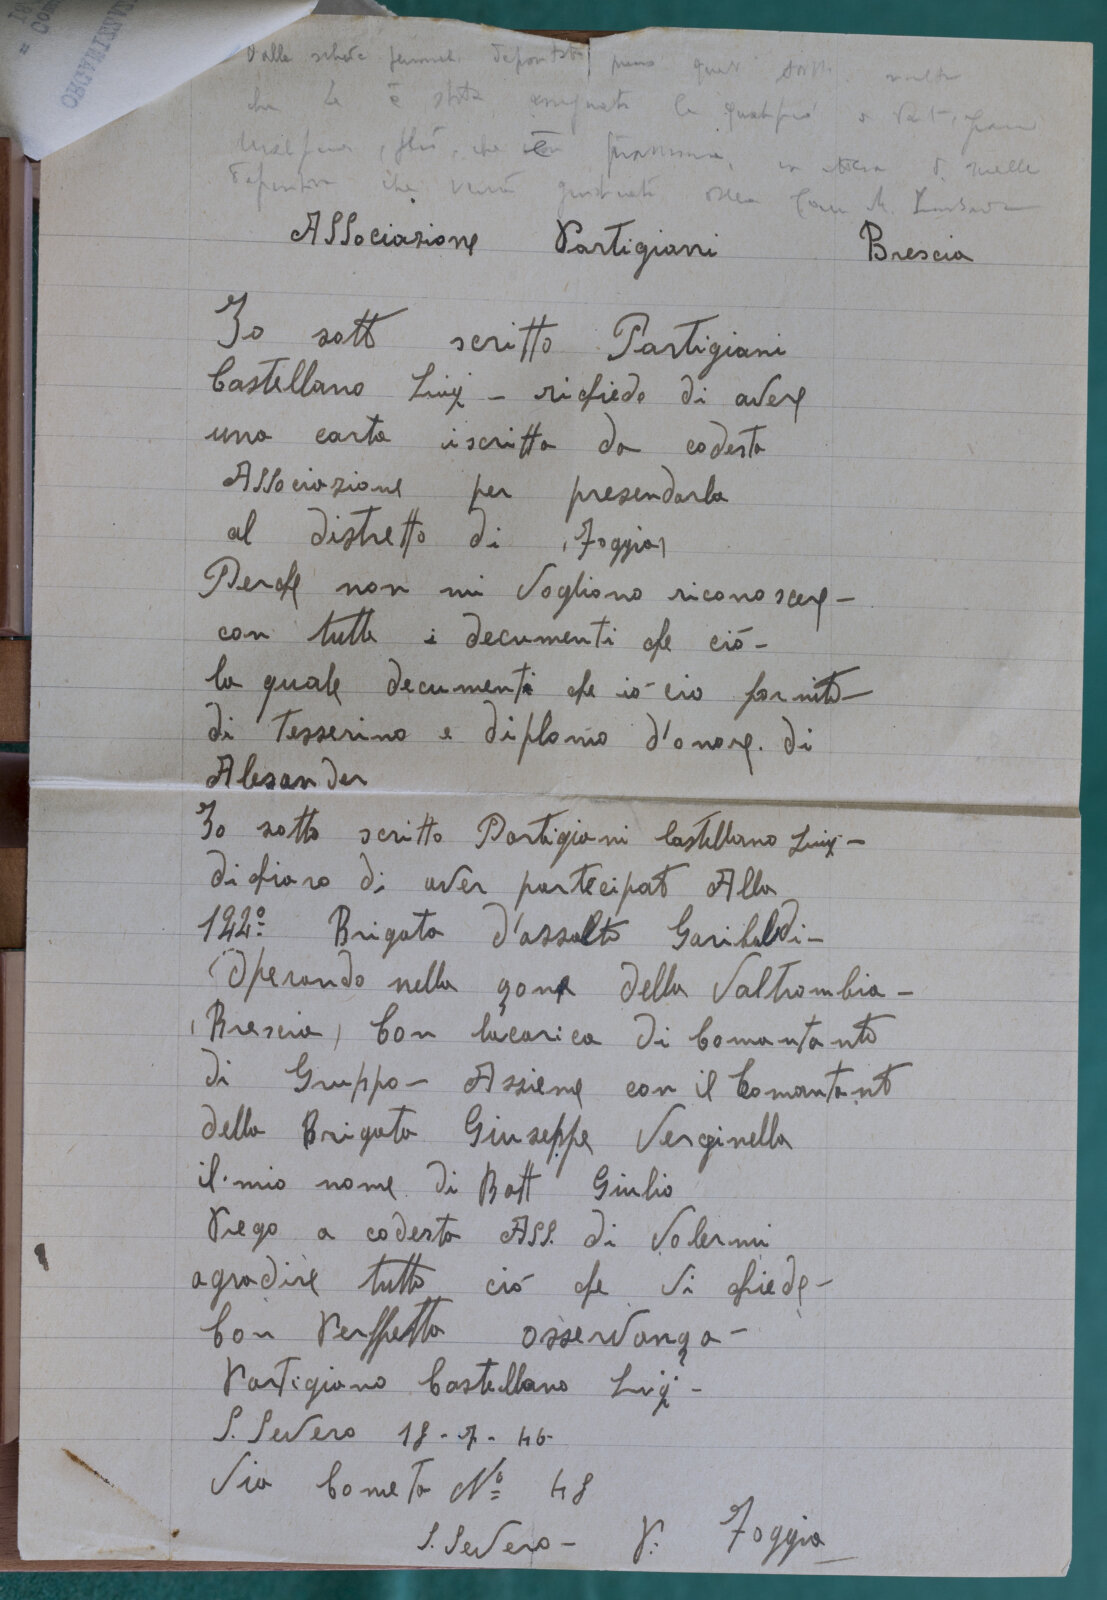 dalle schede
che Le è stata assegnata la qualifica
che è
definitiva che verrà
Associazione Partigiani Brescia
Io sott scritto Partigiani
Castellano Luigi - richiede di avere
una carta iscritta da codesta
Associazione per presendarla
al distretto di (Foggia)
Perche non mi vogliono riconoscere -
con tutte i decumenti che ciò -
la quale decumenti che iò cio fornito -
di Tesserino e diploma d'onore. di
Alesander
Io sotto scritto Partigiani Castellano Luigi -
dichiaro di aver partecipat Alla
122º Brigata d'assalto Garibaldi -
Operando nella zona della Valtrombia -
(Brescia) Con lacarica di Comantanto
di Gruppo - Assieme con il Comantant
della Brigata Giuseppe Verginella
il mio nome di Batt Giulio
Prego a codesta ASS. di Volermi
agradire tutto ciò che Vi chiede -
Con Perffetta osservanza -
Partigiano Castellano Luigi -
S. Severo 18 - 7 - 46
Via Cometa Nº 48
S. Severo - P. Foggia